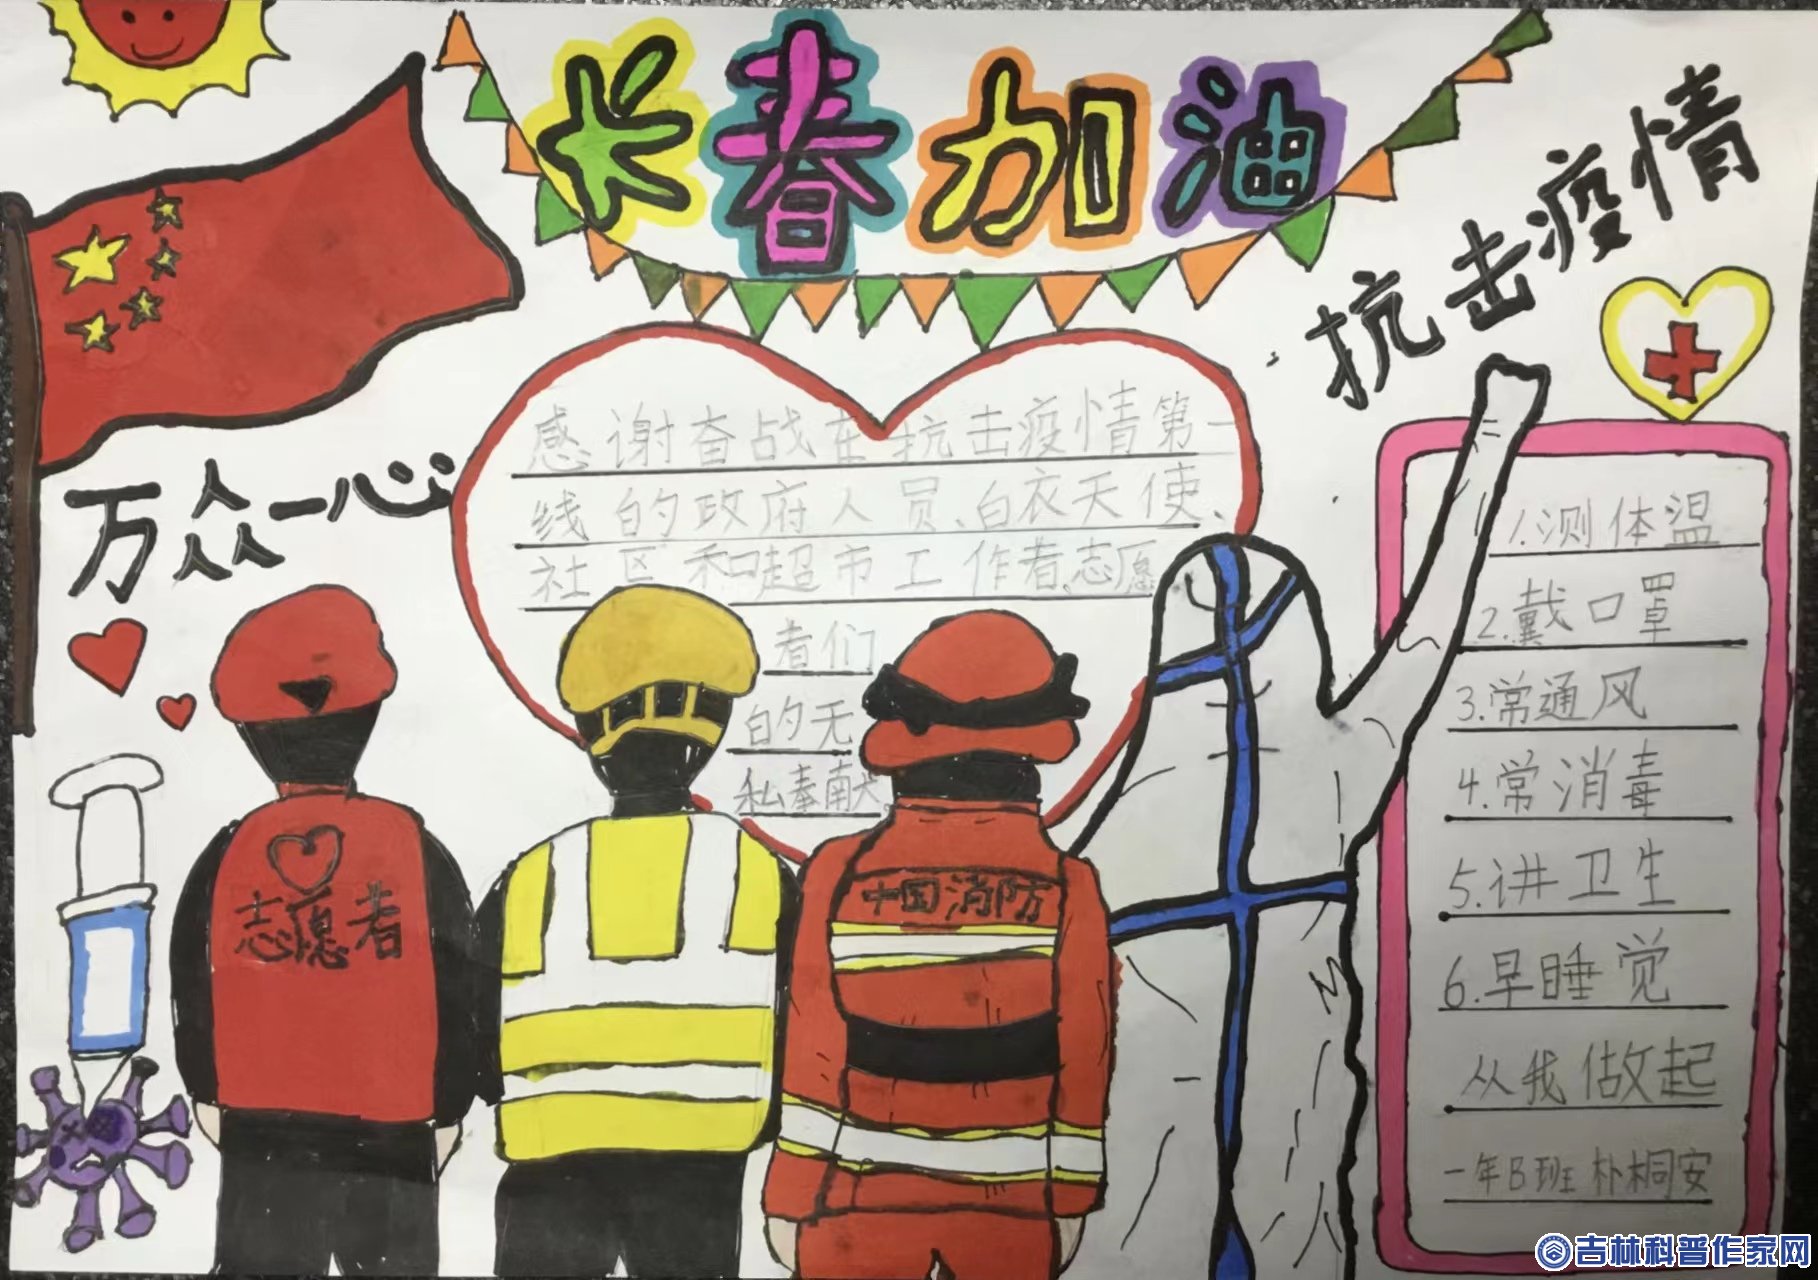 长春加油
抗击疫情
万众一心
感谢奋战在抗击疫情第一
线的政府人员、白衣天使、
社区和超市工作者、志愿
者们
的无
私奉献
志愿者
中国消防
1.测体温
2.戴口罩
3.常通风
4.常消毒
5.讲卫生
6.早睡觉
从我做起
一年B班 朴桐安
吉林科普作家网